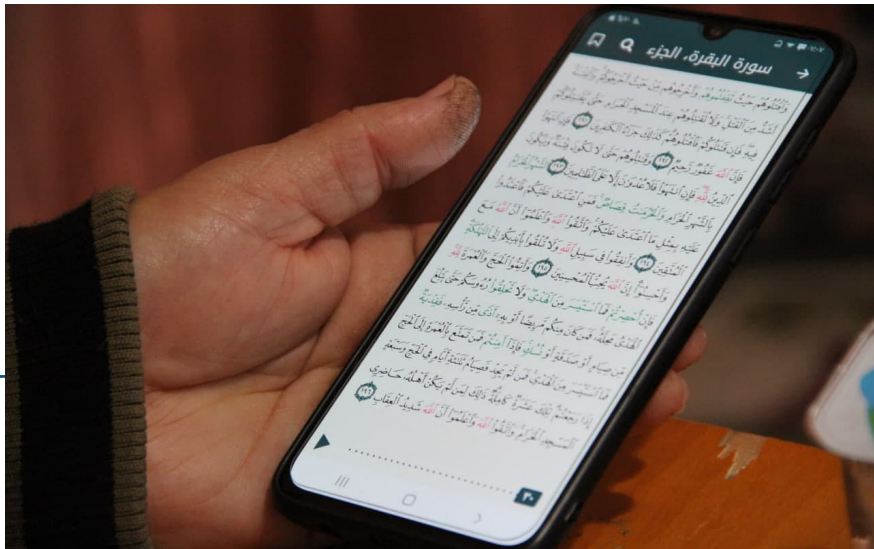 ٧:٠٧
سورة البقرة، الجزء
وَٱقۡتُلُوهُمۡ حَيۡثُ ثَقِفۡتُمُوهُمۡ وَأَخۡرِجُوهُم مِّنۡ حَيۡثُ أَخۡرَجُوكُمۡۚ وَٱلۡفِتۡنَةُ
أَشَدُّ مِنَ ٱلۡقَتۡلِۚ وَلَا تُقَٰتِلُوهُمۡ عِندَ ٱلۡمَسۡجِدِ ٱلۡحَرَامِ حَتَّىٰ يُقَٰتِلُوكُمۡ
فِيهِۖ فَإِن قَٰتَلُوكُمۡ فَٱقۡتُلُوهُمۡۗ كَذَٰلِكَ جَزَآءُ ٱلۡكَٰفِرِينَ ١٩١ فَإِنِ ٱنتَهَوۡاْ
فَإِنَّ ٱللَّهَ غَفُورٞ رَّحِيمٞ ١٩٢ وَقَٰتِلُوهُمۡ حَتَّىٰ لَا تَكُونَ فِتۡنَةٞ وَيَكُونَ
ٱلدِّينُ لِلَّهِۖ فَإِنِ ٱنتَهَوۡاْ فَلَا عُدۡوَٰنَ إِلَّا عَلَى ٱلظَّٰلِمِينَ ١٩٣ ٱلشَّهۡرُ ٱلۡحَرَامُ
بِٱلشَّهۡرِ ٱلۡحَرَامِ وَٱلۡحُرُمَٰتُ قِصَاصٞۚ فَمَنِ ٱعۡتَدَىٰ عَلَيۡكُمۡ فَٱعۡتَدُواْ
عَلَيۡهِ بِمِثۡلِ مَا ٱعۡتَدَىٰ عَلَيۡكُمۡۚ وَٱتَّقُواْ ٱللَّهَ وَٱعۡلَمُوٓاْ أَنَّ ٱللَّهَ مَعَ
ٱلۡمُتَّقِينَ ١٩٤ وَأَنفِقُواْ فِي سَبِيلِ ٱللَّهِ وَلَا تُلۡقُواْ بِأَيۡدِيكُمۡ إِلَى ٱلتَّهۡلُكَةِ
وَأَحۡسِنُوٓاْۚ إِنَّ ٱللَّهَ يُحِبُّ ٱلۡمُحۡسِنِينَ ١٩٥ وَأَتِمُّواْ ٱلۡحَجَّ وَٱلۡعُمۡرَةَ لِلَّهِۚ
فَإِنۡ أُحۡصِرۡتُمۡ فَمَا ٱسۡتَيۡسَرَ مِنَ ٱلۡهَدۡيِۖ وَلَا تَحۡلِقُواْ رُءُوسَكُمۡ حَتَّىٰ يَبۡلُغَ
ٱلۡهَدۡيُ مَحِلَّهُۥۚ فَمَن كَانَ مِنكُم مَّرِيضًا أَوۡ بِهِۦٓ أَذٗى مِّن رَّأۡسِهِۦ فَفِدۡيَةٞ
مِّن صِيَامٍ أَوۡ صَدَقَةٍ أَوۡ نُسُكٖۚ فَإِذَآ أَمِنتُمۡ فَمَن تَمَتَّعَ بِٱلۡعُمۡرَةِ إِلَى ٱلۡحَجِّ
فَمَا ٱسۡتَيۡسَرَ مِنَ ٱلۡهَدۡيِۚ فَمَن لَّمۡ يَجِدۡ فَصِيَامُ ثَلَٰثَةِ أَيَّامٖ فِي ٱلۡحَجِّ وَسَبۡعَةٍ
إِذَا رَجَعۡتُمۡۗ تِلۡكَ عَشَرَةٞ كَامِلَةٞۗ ذَٰلِكَ لِمَن لَّمۡ يَكُنۡ أَهۡلُهُۥ حَاضِرِي
ٱلۡمَسۡجِدِ ٱلۡحَرَامِۚ وَٱتَّقُواْ ٱللَّهَ وَٱعۡلَمُوٓاْ أَنَّ ٱللَّهَ شَدِيدُ ٱلۡعِقَابِ ١٩٦
٣٠